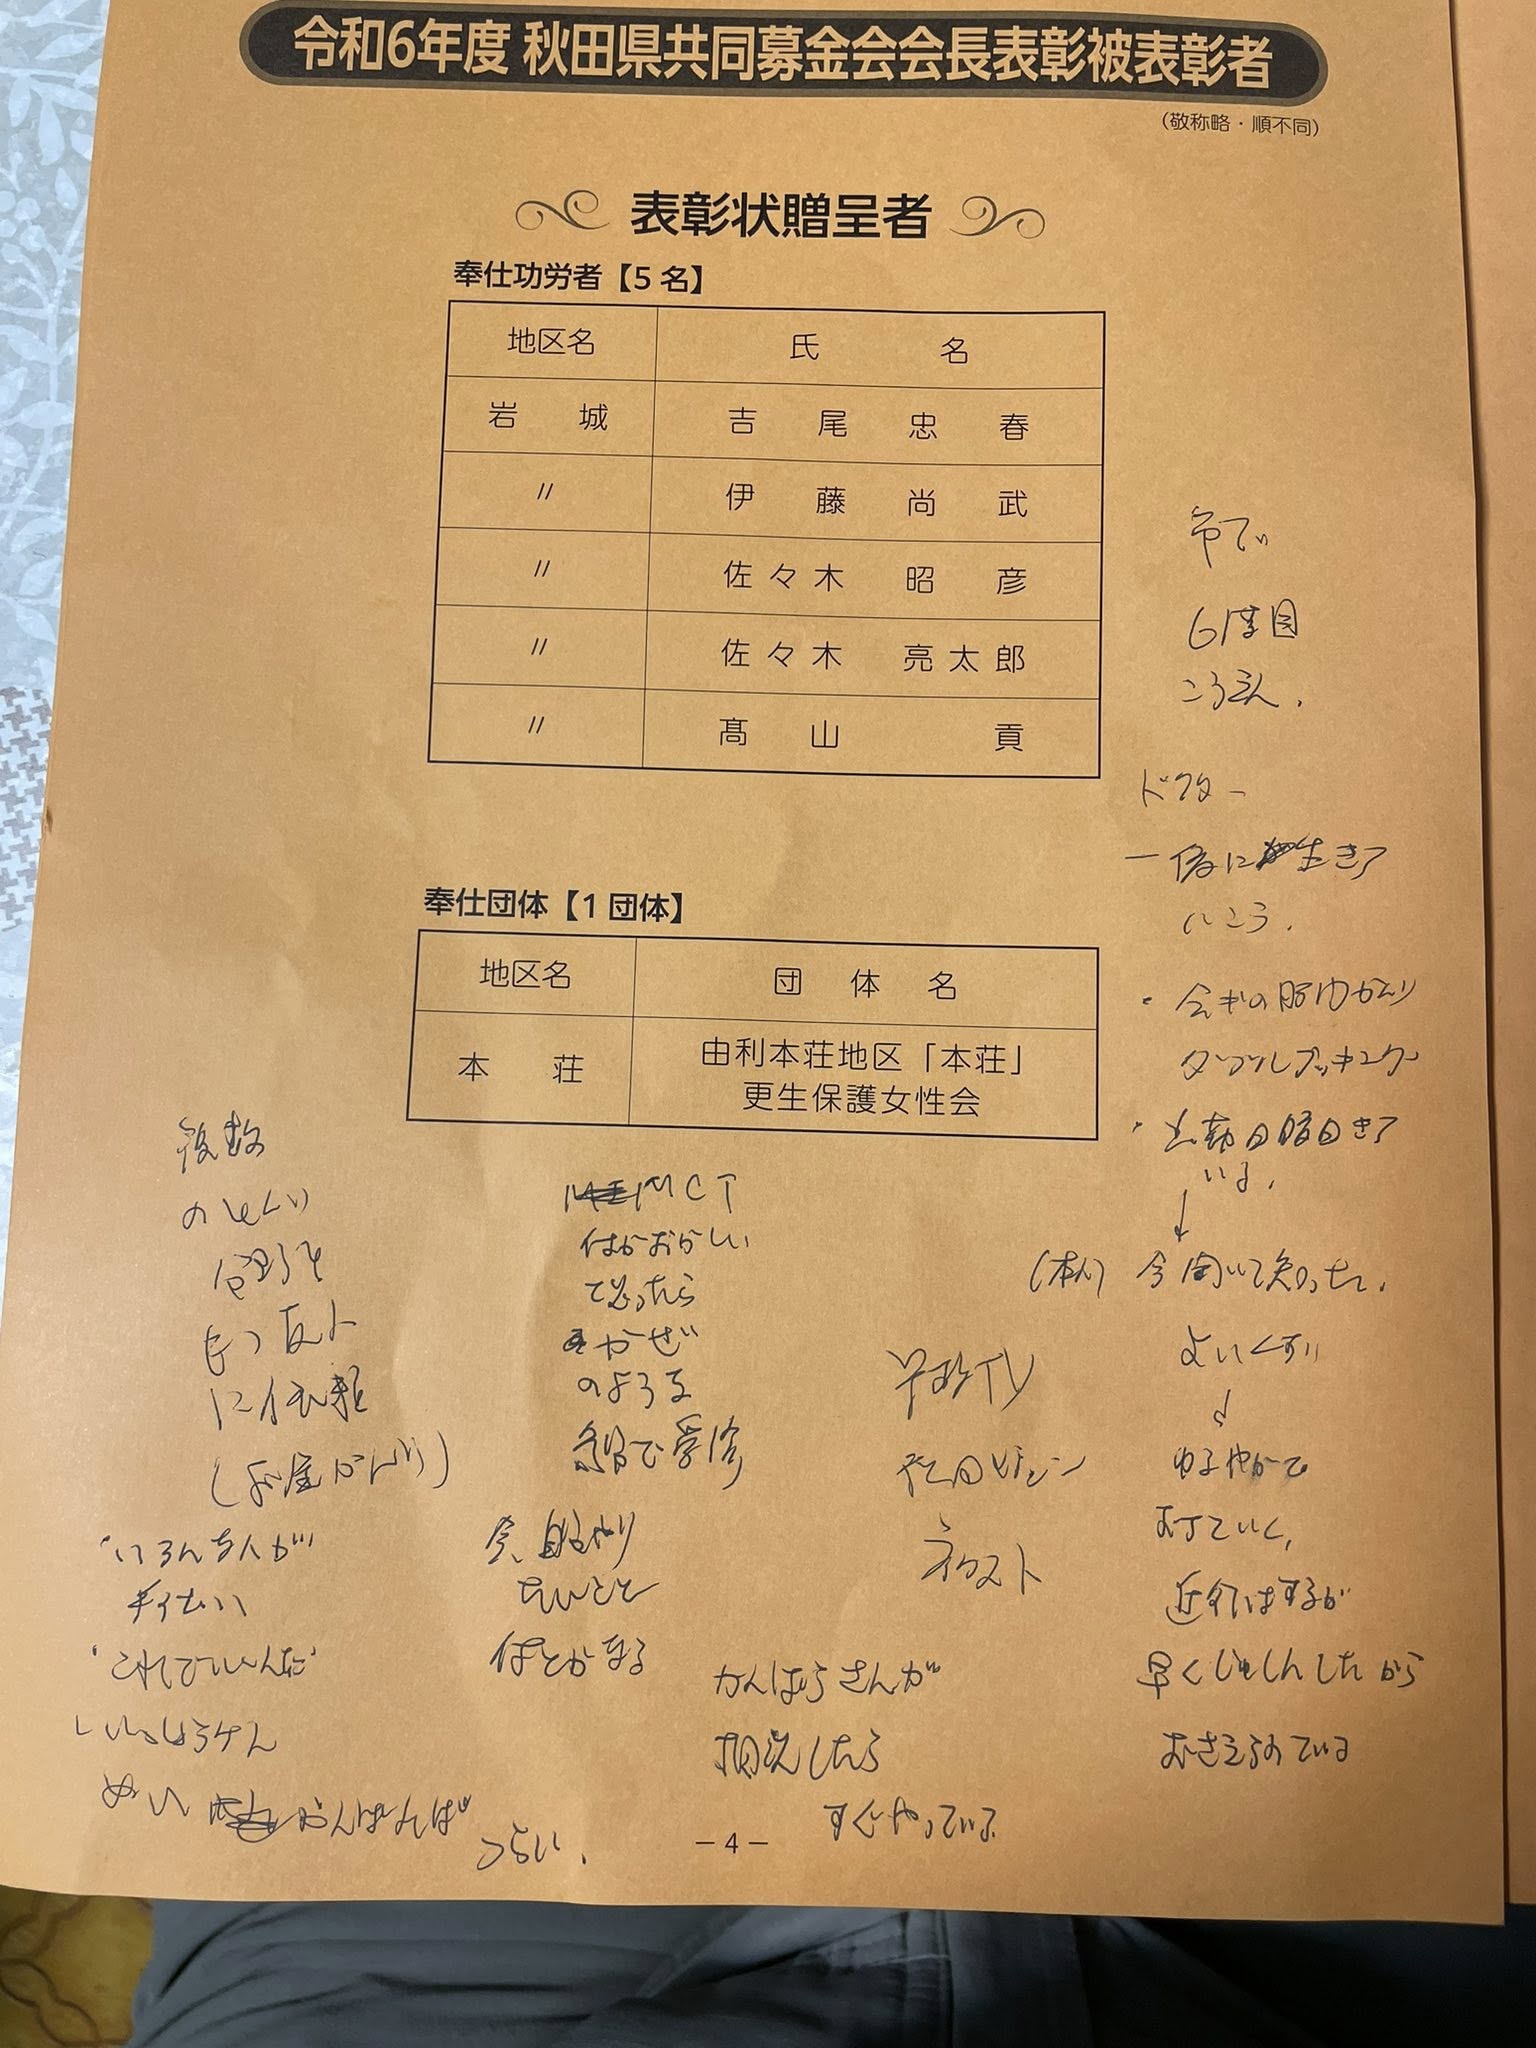 令和6年度 秋田県共同募金会会長表彰被表彰者
（敬称略・順不同）
表彰状贈呈者
奉仕功労者【5名】
地区名 氏名
岩城 吉尾忠春
〃 伊藤尚武
〃 佐々木昭彦
〃 佐々木亮太郎
〃 髙山貢
奉仕団体【1団体】
地区名 団体名
本荘 由利本荘地区「本荘」
更生保護女性会
市で
6度目
ドクター
一緒に生きて
いこう.
・会議の
ダブルブッキング
・出勤日曜日きて
いる.
↓
(本人) 今聞いて知った.
よいくすり
↓
ゆるやかで
おちていく,
近行はするが
早くじゅしんしたから
おさえられている
複数
のとくい
分野を
もつ友人
に依頼
(お金かんり)
・いろんな人が
手伝い
・これでいいんだ
いっしょうけん
めい がんばれば
つらい.
MCT
はおかしい
て思ったら
かぜ
のような
で受診
今、
たいこと
秋田
ネクスト
かんばらさんが
相談したら
すぐやっている
－4－